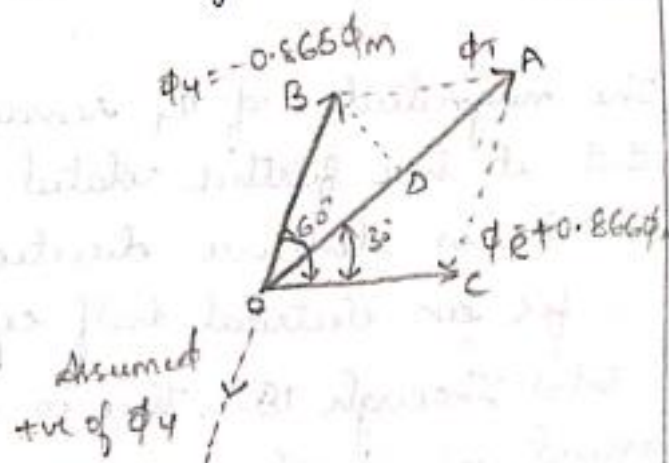 ϕY = -0.865ϕm
ϕT A
B
D
60°
30°
ϕ + 0.866ϕ
C
O
Assumed
+ve of ϕY